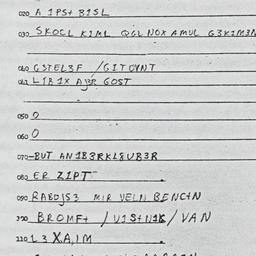 020 A IPS+ BISL
030 SKOCL KIML QGL NOX AMUL G3KIM3N
040 GSTEL3F / GITOVNT
041 LIB IX AJ3R GOST
050 O
060 O
070-BUT AN1B3RKL8UB3R
082 ER ZIPT
090 RABDJS3 MIR VELN BENC+N
BROMF+ / VIS+NIK / VAN
110 L3 XA,IM